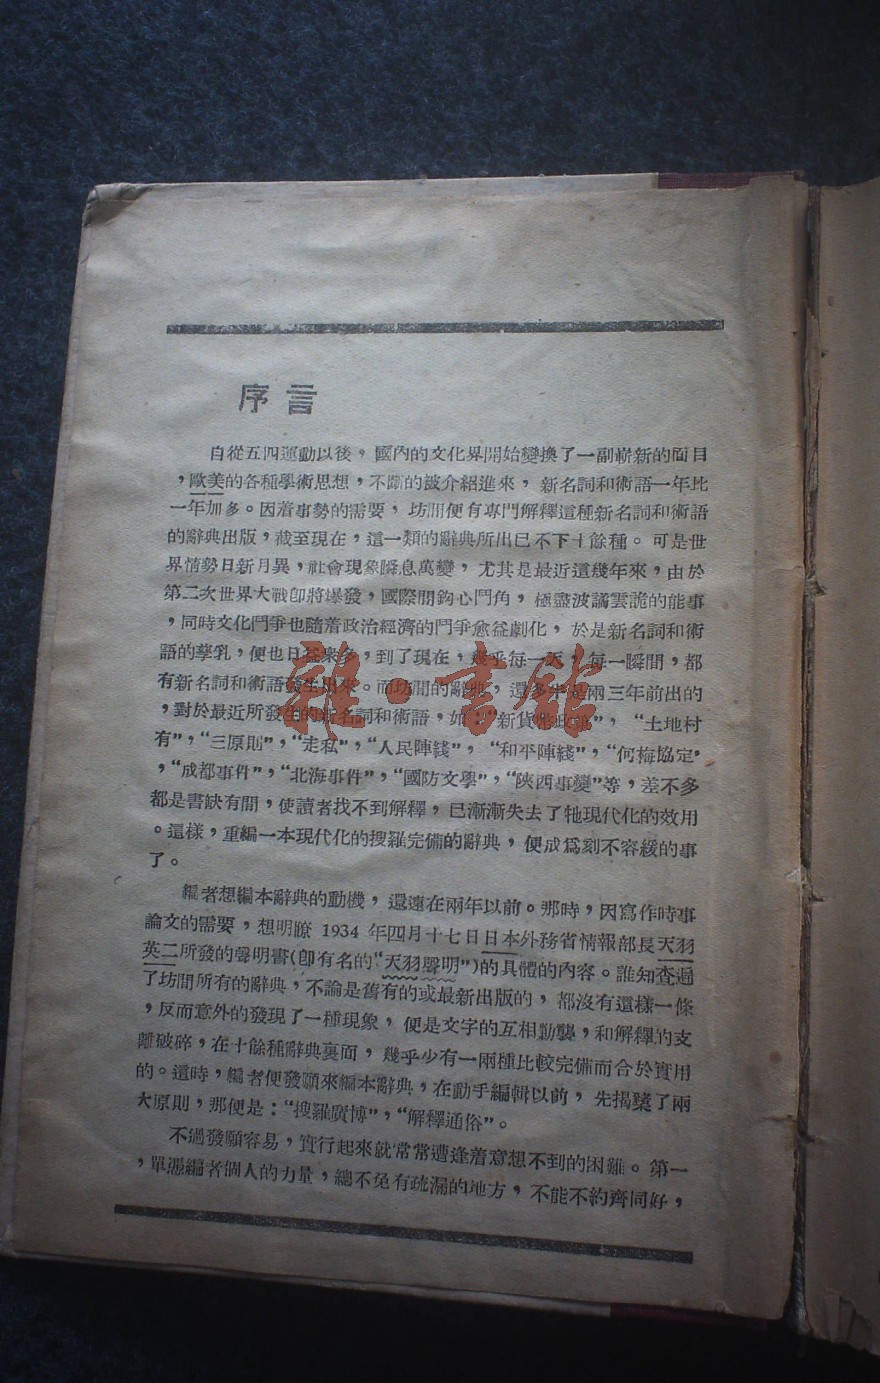 序言
自從五四運動以後，國內的文化界開始變換了一副嶄新的面目
，歐美的各種學術思想，不斷的被介紹進來，新名詞和術語一年比
一年加多。因着事勢的需要，坊間便有專門解釋這種新名詞和術語
的辭典出版，截至現在，這一類的辭典所出已不下十餘種。可是世
界情勢日新月異，社會現象瞬息萬變，尤其是最近這幾年來，由於
第二次世界大戰卽將爆發，國際間鈎心鬥角，極盡波譎雲詭的能事
，同時文化鬥爭也隨着政治經濟的鬥爭愈益劇化，於是新名詞和術
語的孳乳，便也日益衆多，到了現在，幾乎每一天，每一瞬間，都
有新名詞和術語發生出來。而坊間的辭典，還多半是兩三年前出的
，對於最近所發生的新名詞和術語，如：“新貨幣政策”，“土地村
有”，“三原則”，“走私”，“人民陣綫”，“和平陣綫”，“何梅協定”
，“成都事件”，“北海事件”，“國防文學”，“陝西事變”等，差不多
都是書缺有間，使讀者找不到解釋，已漸漸失去了牠現代化的效用
。這樣，重編一本現代化的搜羅完備的辭典，便成爲刻不容緩的事
了。
編者想編本辭典的動機，還遠在兩年以前。那時，因寫作時事
論文的需要，想明瞭 1934 年四月十七日日本外務省情報部長天羽
英二所發的聲明書(卽有名的“天羽聲明”)的具體的內容。誰知查遍
了坊間所有的辭典，不論是舊有的或最新出版的，都沒有這樣一條
，反而意外的發現了一種現象，便是文字的互相勦襲，和解釋的支
離破碎，在十餘種辭典裏面，幾乎少有一兩種比較完備而合於實用
的。這時，編者便發願來編本辭典，在動手編輯以前，先揭櫫了兩
大原則，那便是：“搜羅廣博”，“解釋通俗”。
不過發願容易，實行起來就常常遭逢着意想不到的困難。第一
，單憑編者個人的力量，總不免有疏漏的地方，不能不約齊同好，
雜·書館